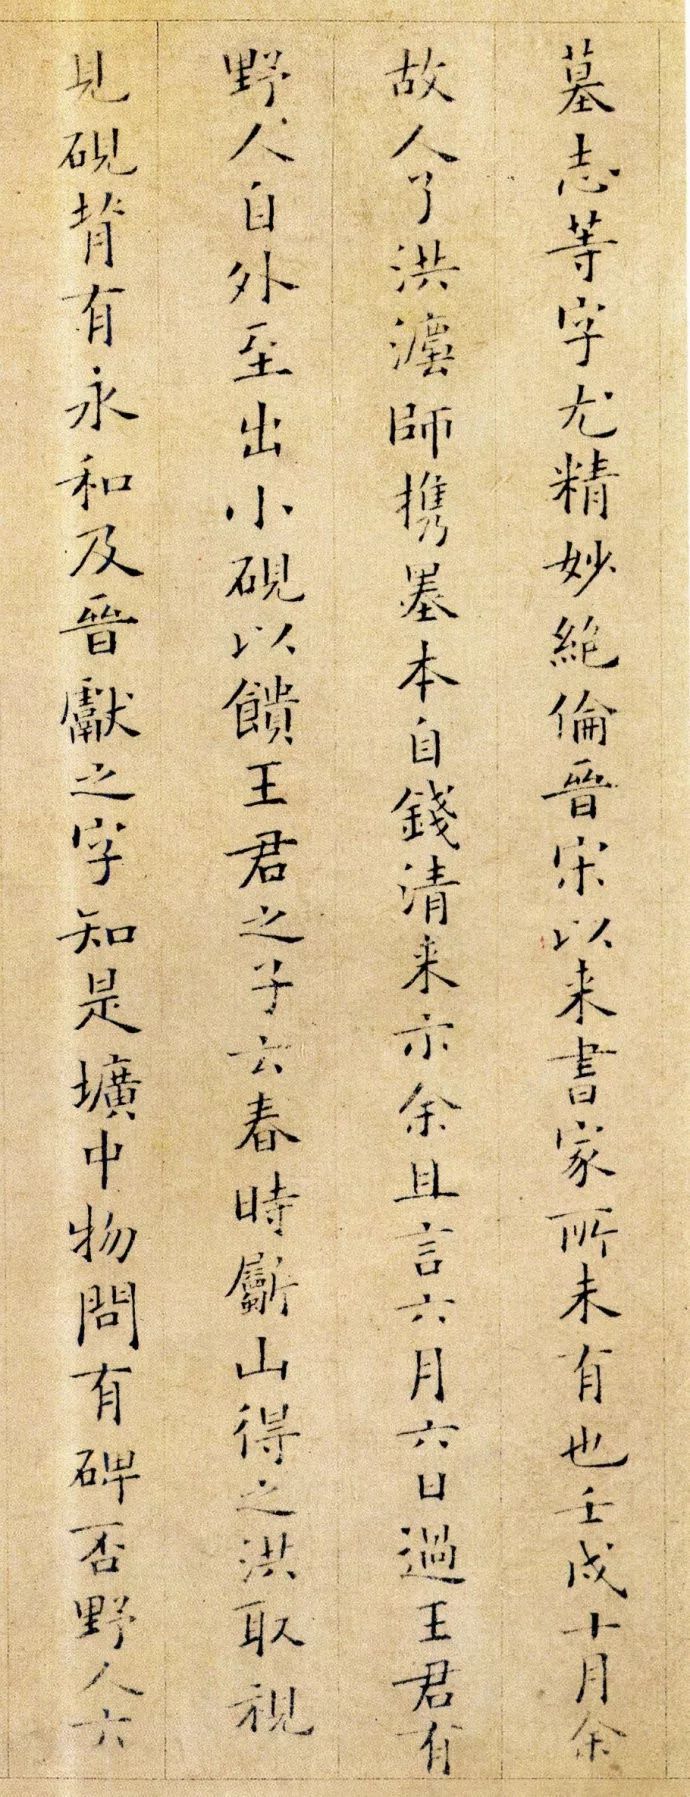 墓志等字尤精妙絶倫晉宋以来書家所未有也壬戌十月余
故人了洪灋師携墨本自錢清来示余且言六月六日過王君有
野人自外至出小硯以饋王君之子云春時斸山得之洪取視
見硯背有永和及晉獻之字知是壙中物問有碑否野人云